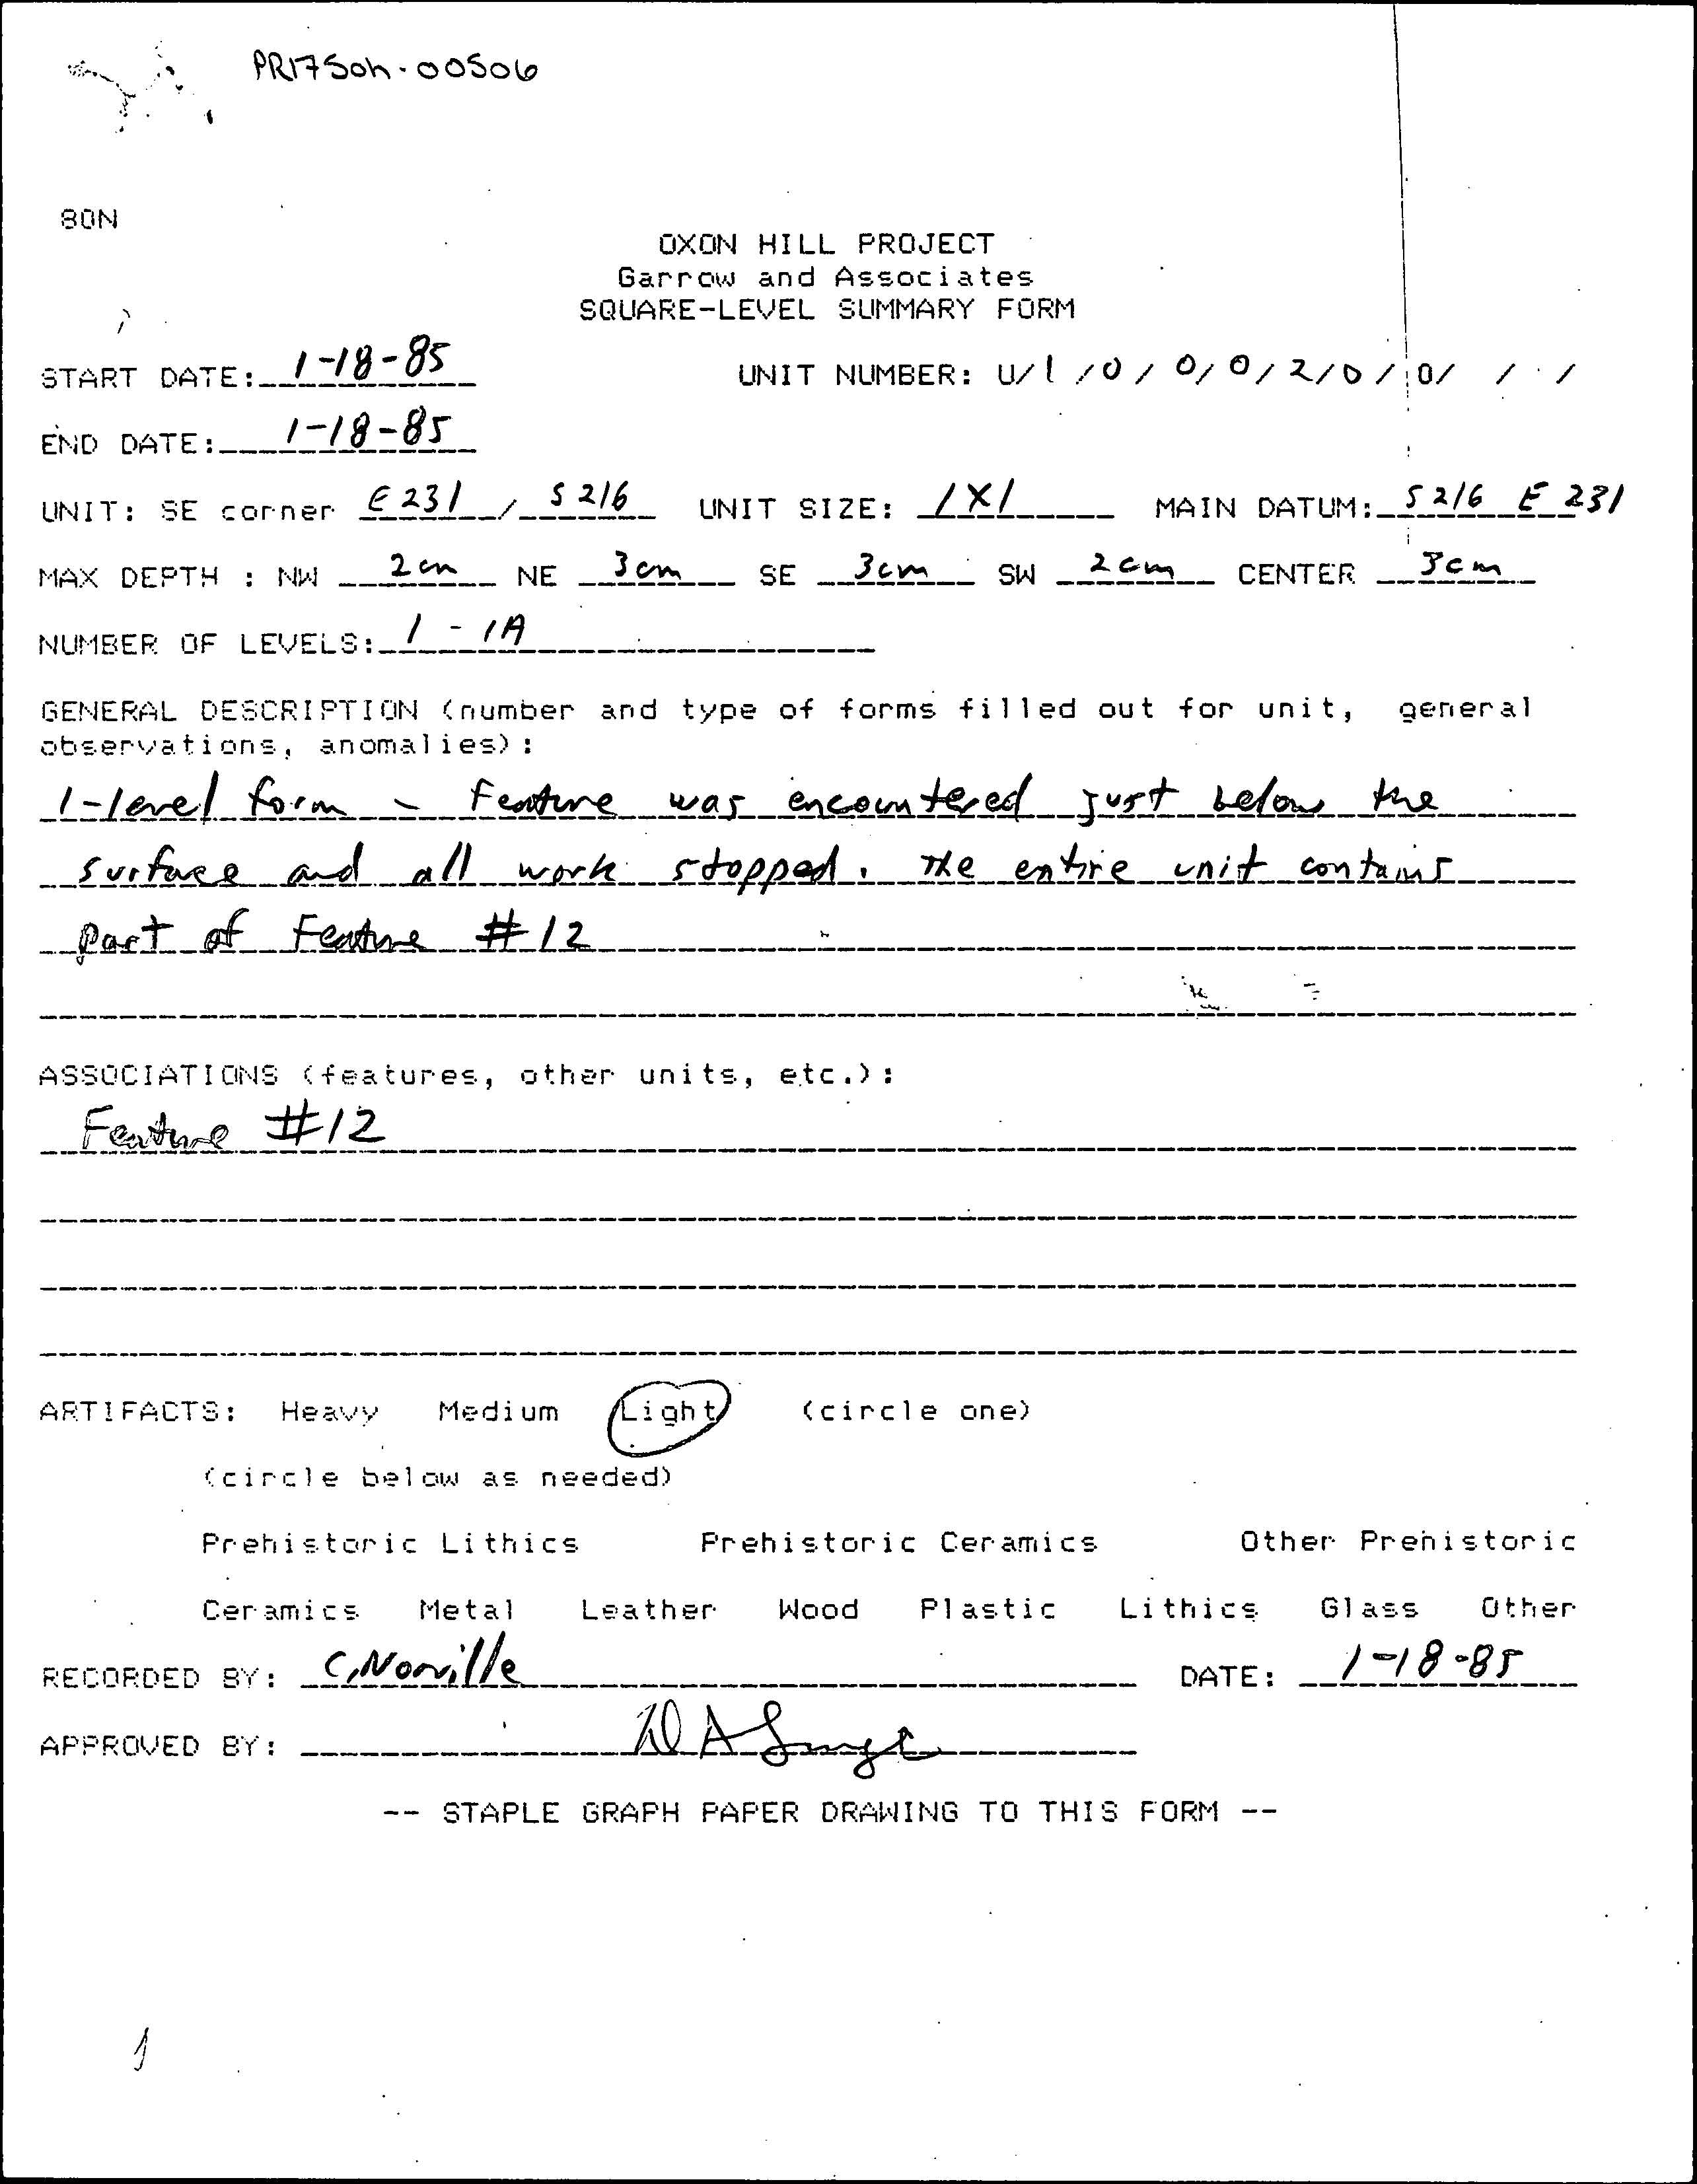 PR175oh-00506
80N
OXON HILL PROJECT
Garrow and Associates
SQUARE-LEVEL SUMMARY FORM
START DATE: 1-18-85 UNIT NUMBER: U/1/0/0/0/2/0/0/ / /
END DATE: 1-18-85
UNIT: SE corner E231 / S216 UNIT SIZE: 1X1 MAIN DATUM: S216 E 231
MAX DEPTH : NW 2cm NE 3cm SE 3cm SW 2cm CENTER 3cm
NUMBER OF LEVELS: 1 - 1A
GENERAL DESCRIPTION (number and type of forms filled out for unit, general
observations, anomalies):
1-level form - Feature was encountered just below the
surface and all work stopped. The entire unit contains
part of Feature #12
ASSOCIATIONS (features, other units, etc.):
Feature #12
ARTIFACTS: Heavy Medium Light (circle one)
(circle below as needed)
Prehistoric Lithics Prehistoric Ceramics Other Prehistoric
Ceramics Metal Leather Wood Plastic Lithics Glass Other
RECORDED BY: C. Norville DATE: 1-18-85
APPROVED BY:
-- STAPLE GRAPH PAPER DRAWING TO THIS FORM --